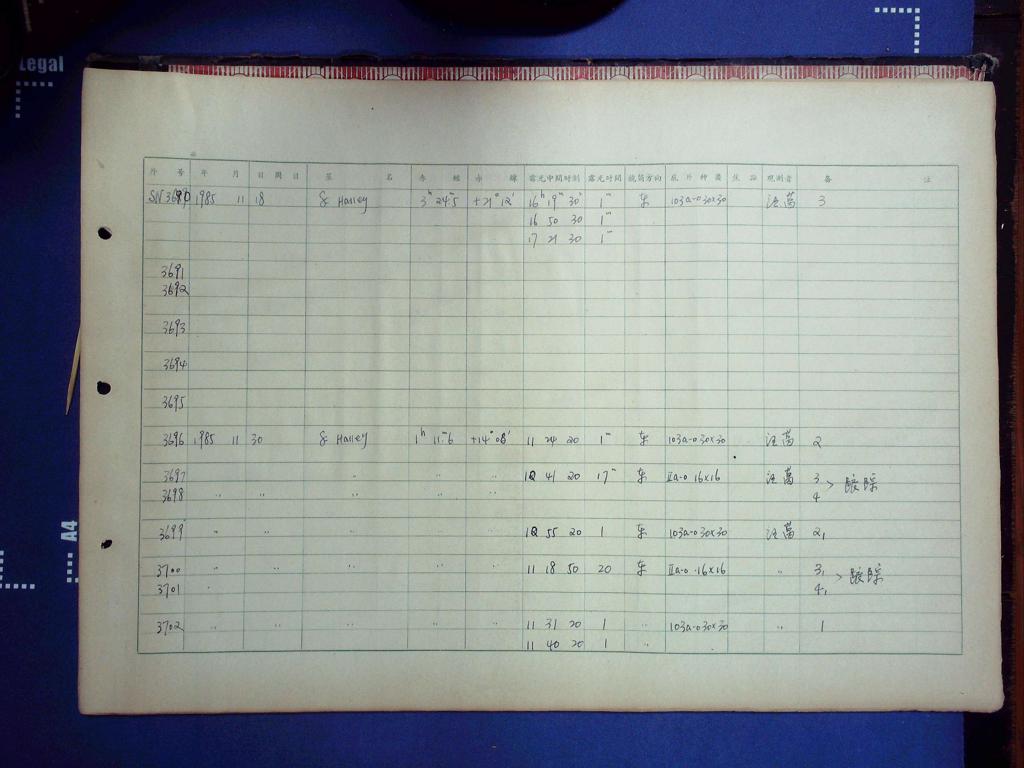 Legal
A4
片 号 年 月 日 期 日 星 名 赤 经 赤 纬 露光中间时刻 露光时间 镜筒方向 底片种类 观测者 备 注
SN3690 1985 11 18 & Halley 3ʰ 24.5ᵐ +21° 12' 16ʰ 19ᵐ 30ˢ 1ᵐ 东 103a-0 30×30 3
16 50 30 1ᵐ
17 21 30 1ᵐ
3691
3692
3693
3694
3695
3696 1985 11 30 & Halley 1ʰ 11.ᵐ6 +14° 08' 11 24 20 1ᵐ 东 103a-0 30×30 2
3697 " " " 10 41 20 17ᵐ 东 IIa-0 16×16 3 > 跟踪
3698 " " " " " 4
3699 " " " " 10 55 20 1 东 103a-0 30×30 2,
3700 " " " " " 11 18 50 20 东 IIa-0 16×16 " 3, > 跟踪
3701 " 4,
3702 " " " " " 11 31 20 1 " 103a-0 30×30 " 1
11 40 20 1 "